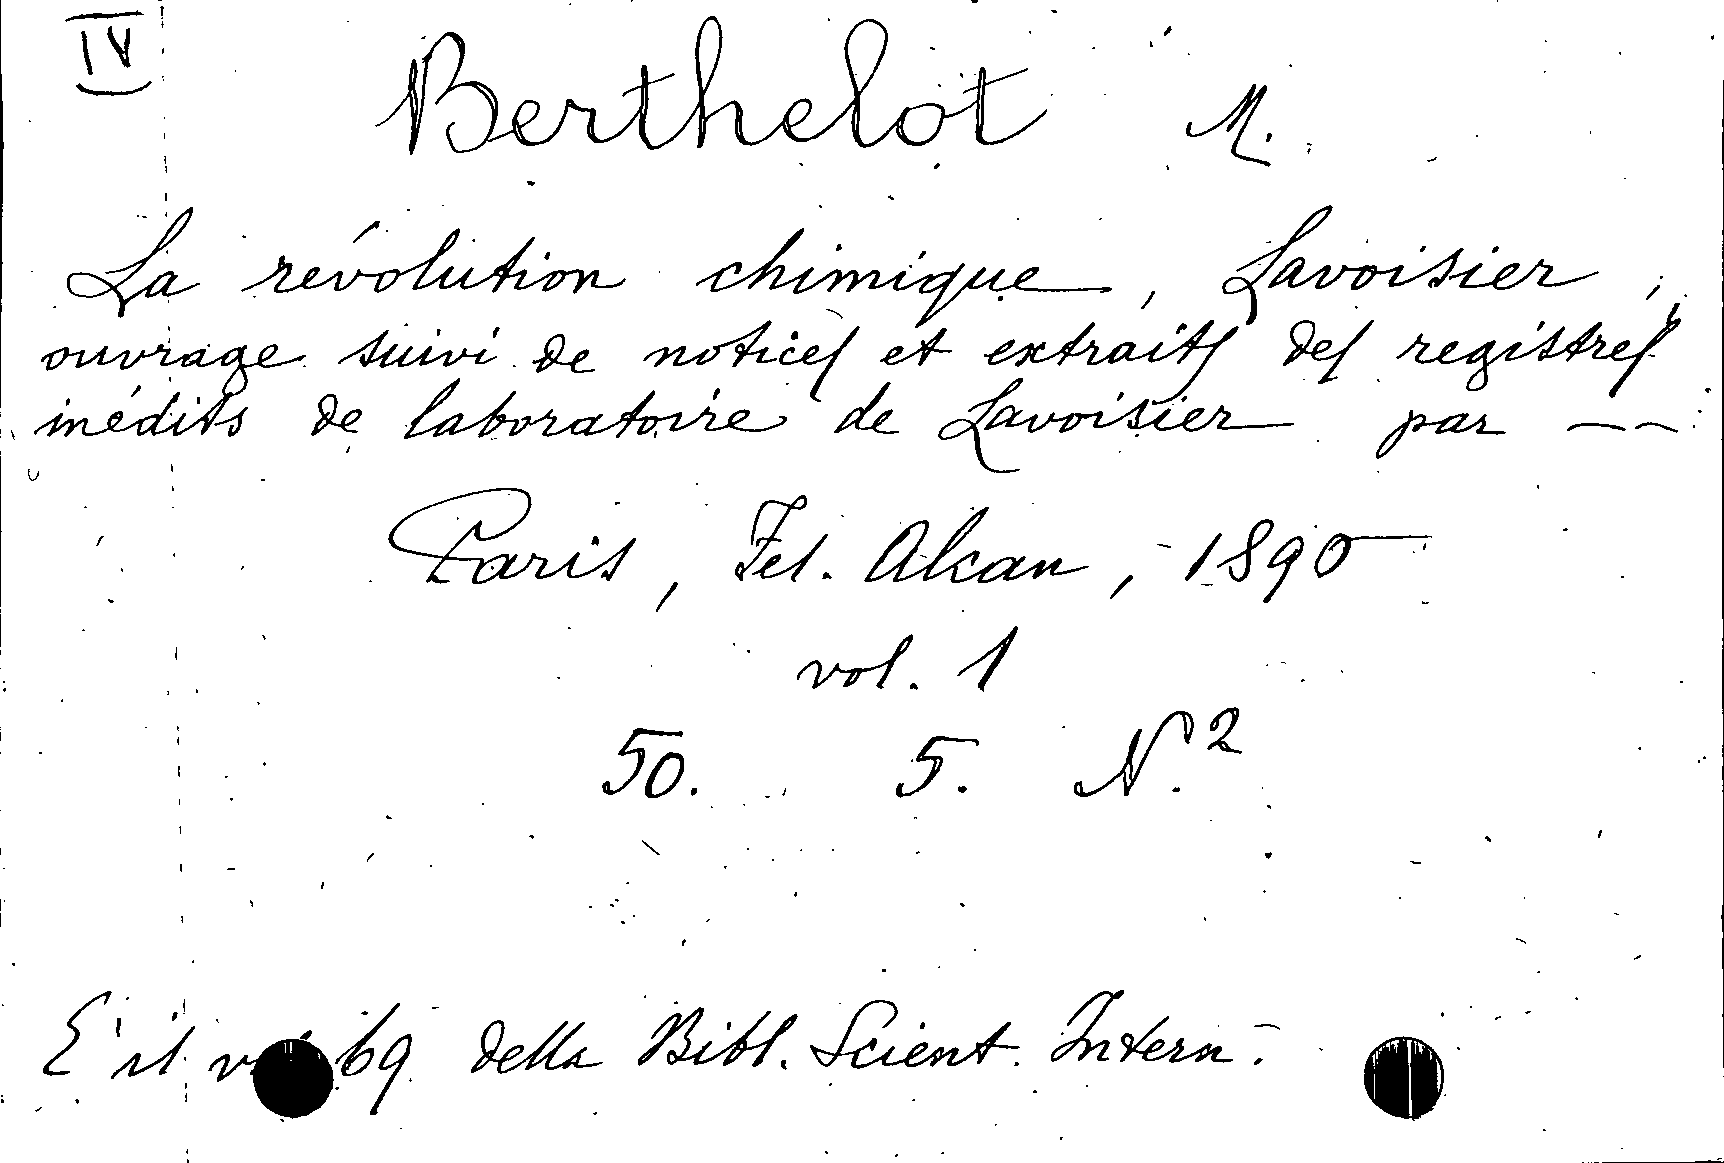 IV
Berthelot M.
La révolution chimique, Lavoisier,
ouvrage suivi de notices et extraits des registres
inédits de laboratoire de Lavoisier par --
Paris, Fel. Alcan, 1890
vol. 1
50. 5. N.2
E' il 69 della Bibl. Scient. Intern.